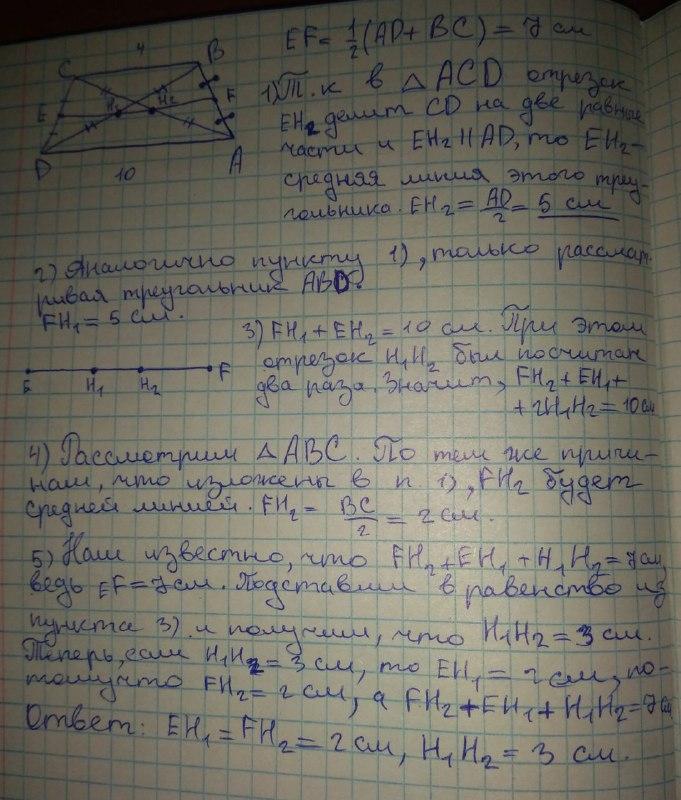 EF = 1/2 (AD + BC) = 7 см
4
C B
E H₁ H₂ F
D A
10
1) Т.к в △ ACD отрезок
EH₂ делит CD на две равные
части и EH₂ || AD, то EH₂ -
средняя линия этого треу-
гольника. EH₂ = AD/2 = 5 см
2) Аналогично пункту 1), только рассмат-
ривая треугольник ABD.
FH₁ = 5 см.
3) FH₁ + EH₂ = 10 см. При этом
отрезок H₁H₂ был посчитан
два раза. Значит, FH₂ + EH₁ +
+ 2H₁H₂ = 10 см
E H₁ H₂ F
4) Рассмотрим △ ABC. По тем же причи-
нам, что изложены в п. 1), FH₂ будет
средней линией. FH₂ = BC/2 = 2 см.
5) Нам известно, что FH₂ + EH₁ + H₁H₂ = 7 см,
ведь EF = 7 см. Подставим в равенство из
пункта 3) и получим, что H₁H₂ = 3 см.
Теперь, если H₁H₂ = 3 см, то EH₁ = 2 см, по-
томучто FH₂ = 2 см, а FH₂ + EH₁ + H₁H₂ = 7 см
Ответ: EH₁ = FH₂ = 2 см, H₁H₂ = 3 см.